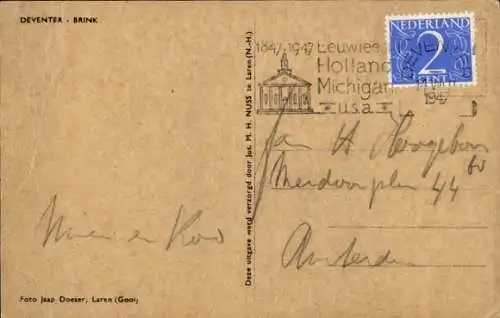 DEVENTER - BRINK
1847 1947 Eeuwfees
Holland
Michigan
U.S.A.
NEDERLAND
2
DEVENTER
1947
Jan H Hoogeboom
44
Amsterdam
en Koo
Deze uitgave werd verzorgd door Jos. M. H. NUSS te Laren (N.-H.)
Foto Jaap Doeser, Laren (Gooi)